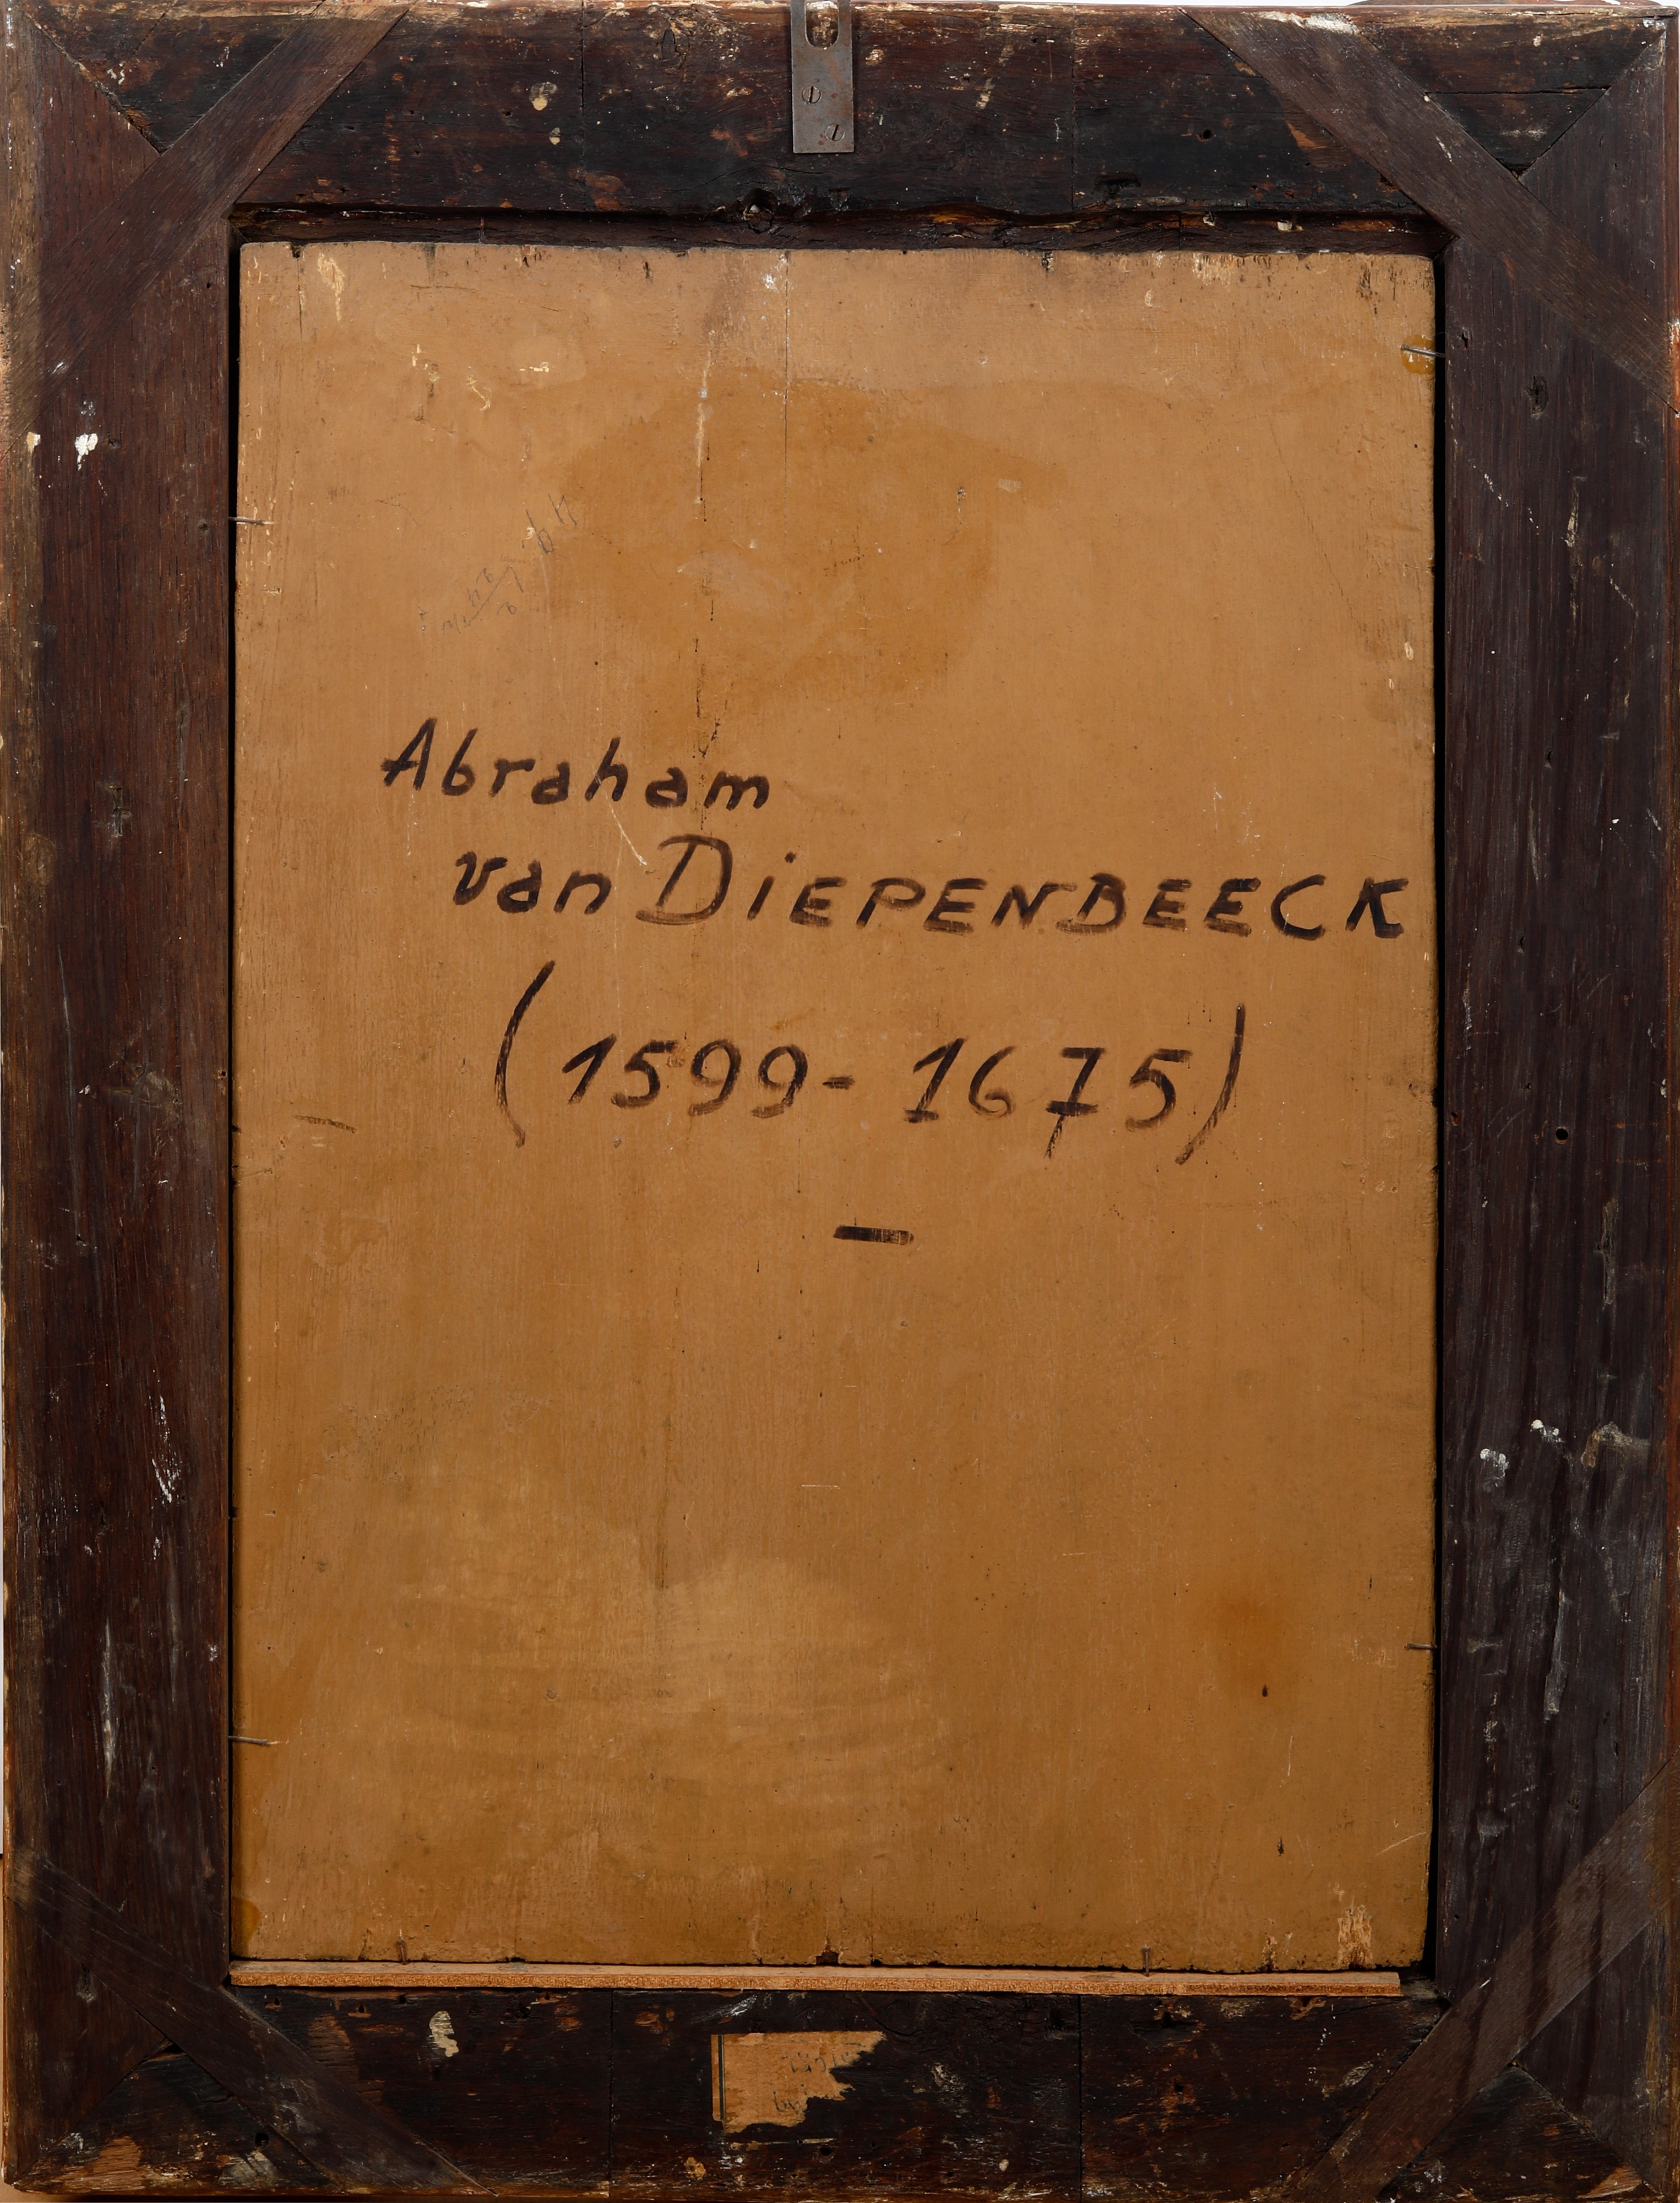 Abraham
van DiEPENBEECK
(1599-1675)